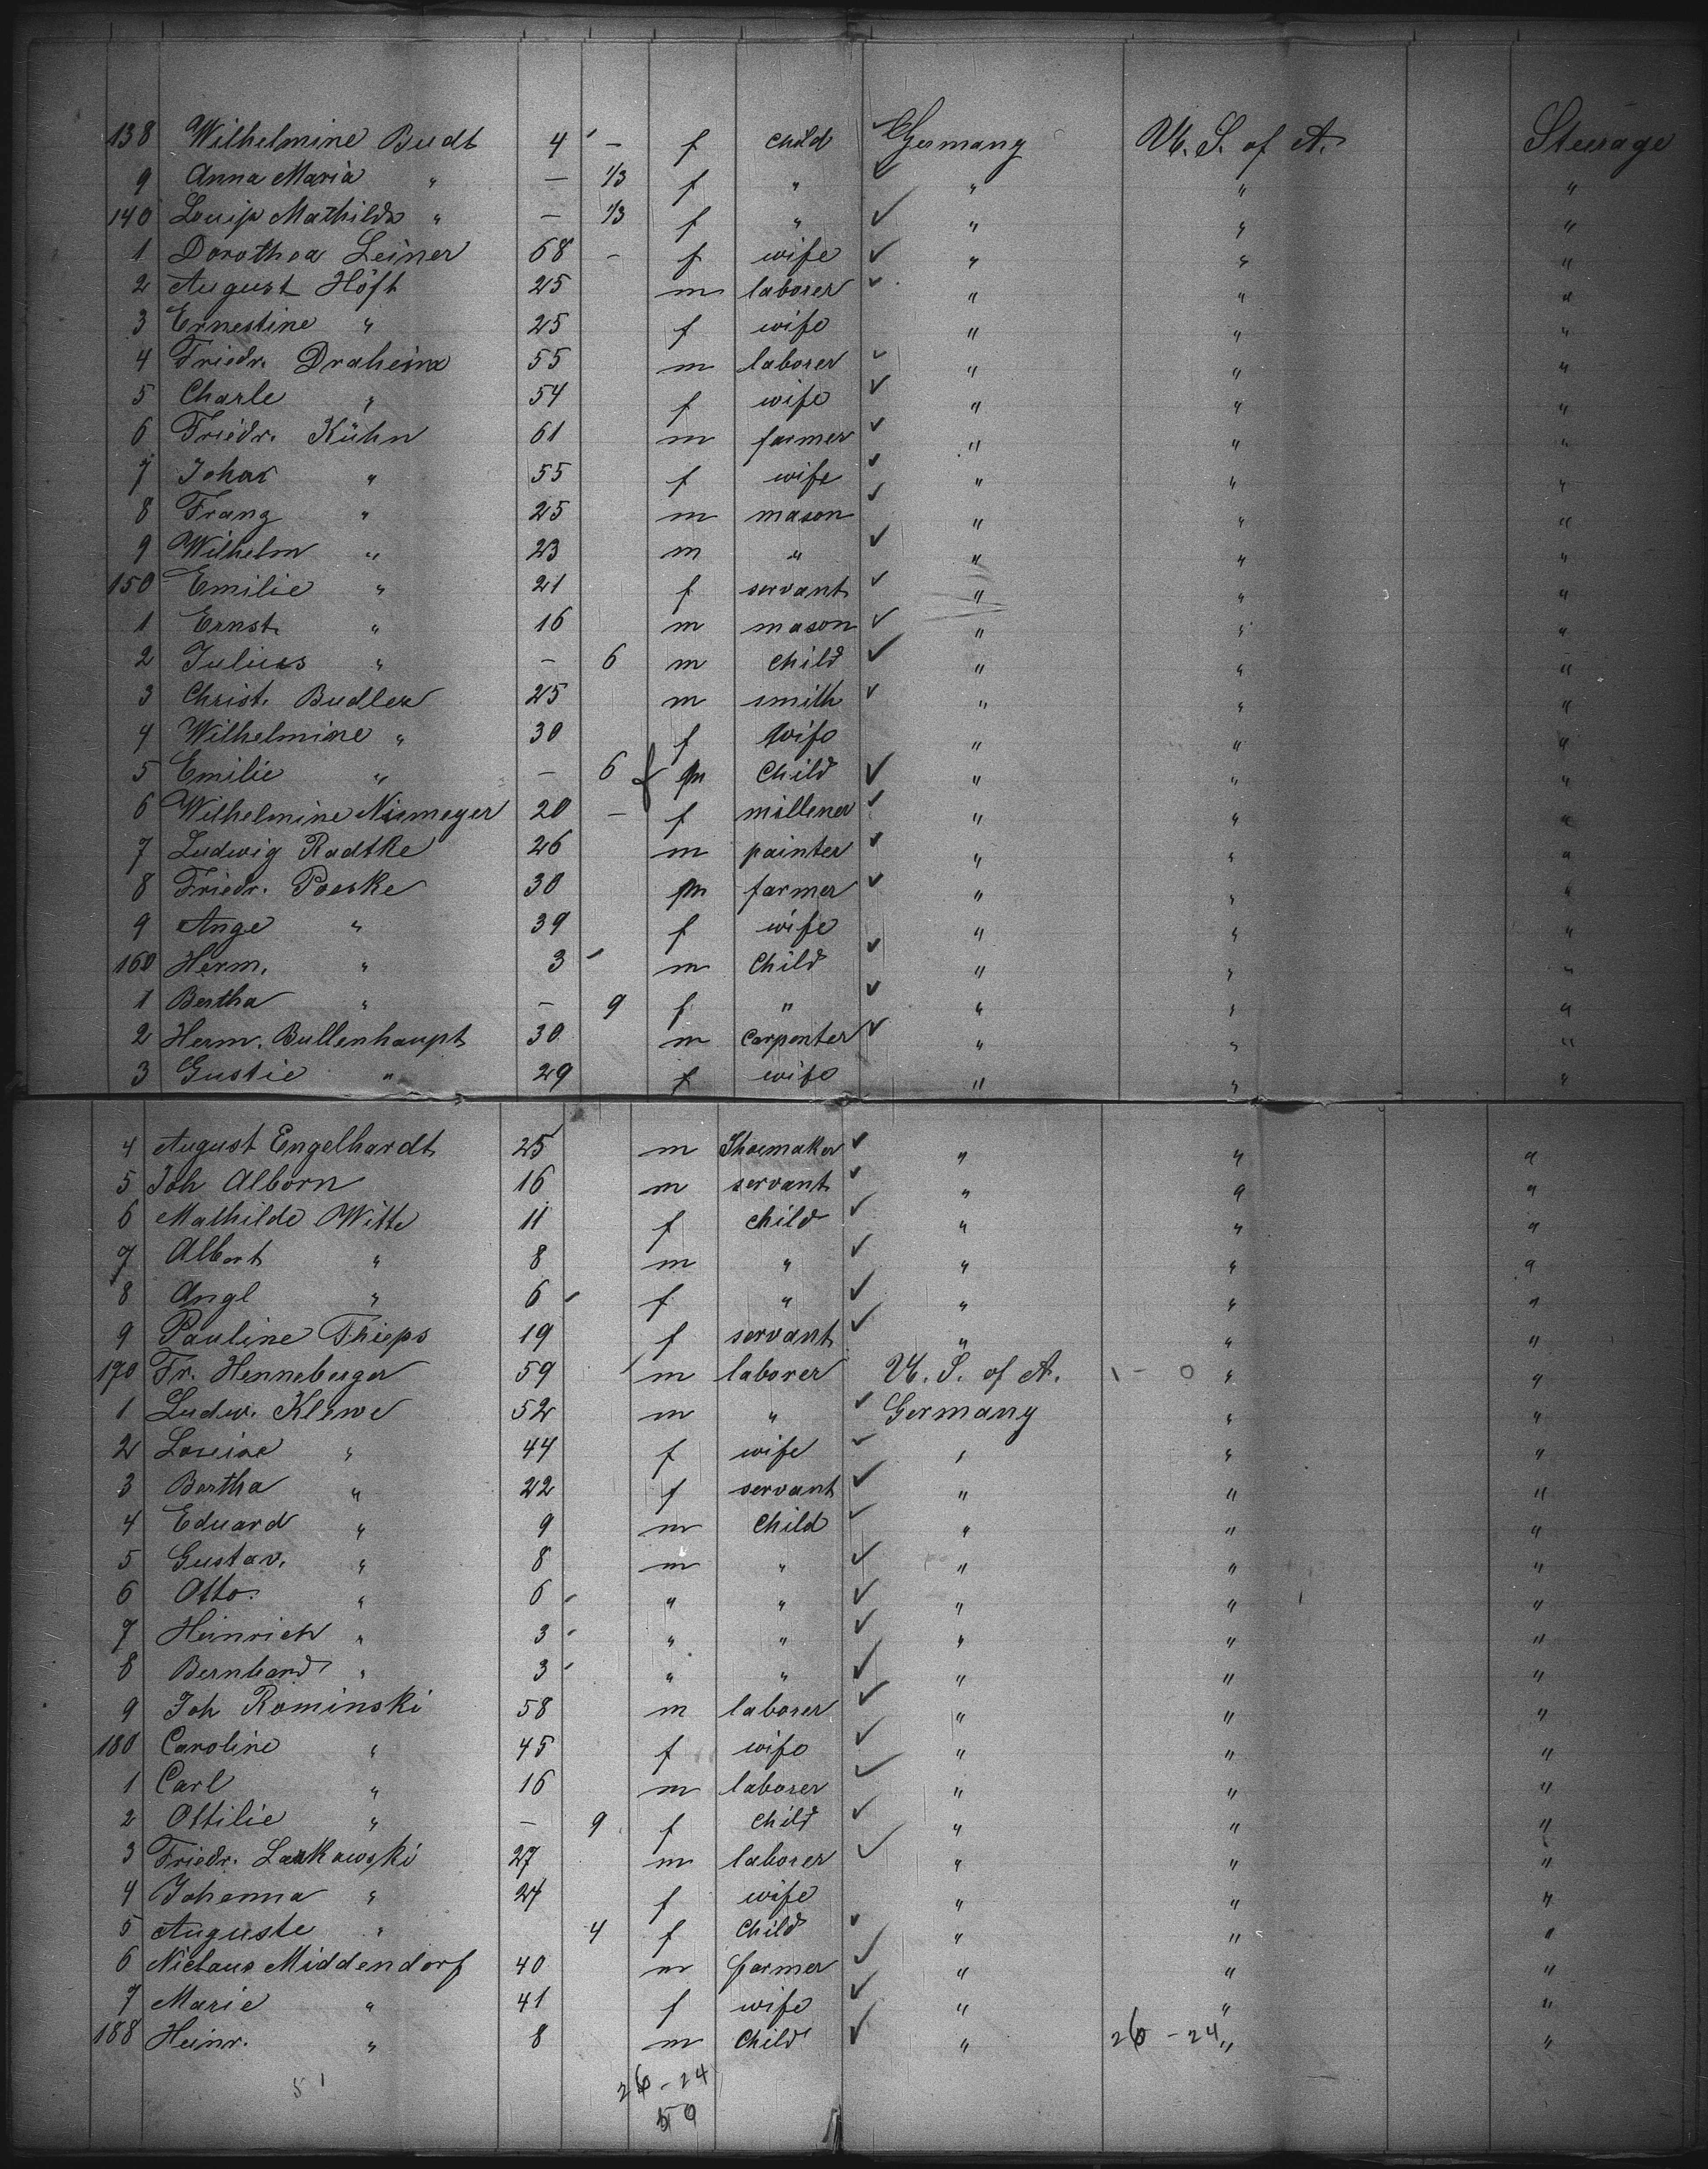 138 Wilhelmine Budt 4 - f child Germany U. S. of A. Steerage
9 Anna Maria " — 1/3 f " " " "
140 Louise Mathilda " — 1/3 f " " " "
1 Dorothea Leiner 68 - f wife " " "
2 August Höft 25 m laborer " " "
3 Ernestine " 25 f wife " " "
4 Friedr. Draheim 55 m laborer " " "
5 Charle " 54 f wife " " "
6 Friedr. Kühn 61 m farmer " " "
7 Johar " 55 f wife " " "
8 Franz " 25 m mason " " "
9 Wilhelm " 23 m " " " "
150 Emilie " 21 f servant " " "
1 Ernst " 16 m mason " " "
2 Julius " — 6 m child " " "
3 Christ. Budler 25 m smith " " "
4 Wilhelmine " 30 f wife " " "
5 Emilie " — 6 f m Child " " "
6 Wilhelmine Niemeyer 20 — f millener " " "
7 Ludwig Radtke 26 m painter " " "
8 Friedr. Poeske 30 m farmer " " "
9 Ange " 39 f wife " " "
160 Herm. " 3 m Child " " "
1 Bertha " — 9 f " " " "
2 Herm. Bullenhaupt 30 m Carpenter " " "
3 Gustie " 29 f wife " " "
4 August Engelhardt 25 m Shoemaker " " "
5 Joh Alborn 16 m servant " " "
6 Mathilde Witte 11 f child " " "
7 Albert " 8 m " " " "
8 Angl " 6 f " " " "
9 Pauline Thieps 19 f servant " " "
170 Fr. Henneberger 59 m laborer U. S. of A. 1 - 0 " "
1 Ludw. Klewe 52 m " Germany " "
2 Louise " 44 f wife " " "
3 Bertha " 22 f servant " " "
4 Eduard " 9 m Child " " "
5 Gustav. " 8 m " " " "
6 Otto. " 6 " " " " "
7 Heinrich " 3 " " " " "
8 Bernhard " 3 " " " " "
9 Joh Rominski 58 m laborer " " "
180 Caroline " 45 f wife " " "
1 Carl " 16 m laborer " " "
2 Ottilie " — 9 f child " " "
3 Friedr. Laskowski 27 m laborer " " "
4 Johanna " 24 f wife " " "
5 Auguste " 4 f Child " " "
6 Niclaus Middendorf 40 m farmer " " "
7 Marie " 41 f wife " " "
188 Heinr. " 8 m Child " 26 - 24 " "
51 26 - 24
50